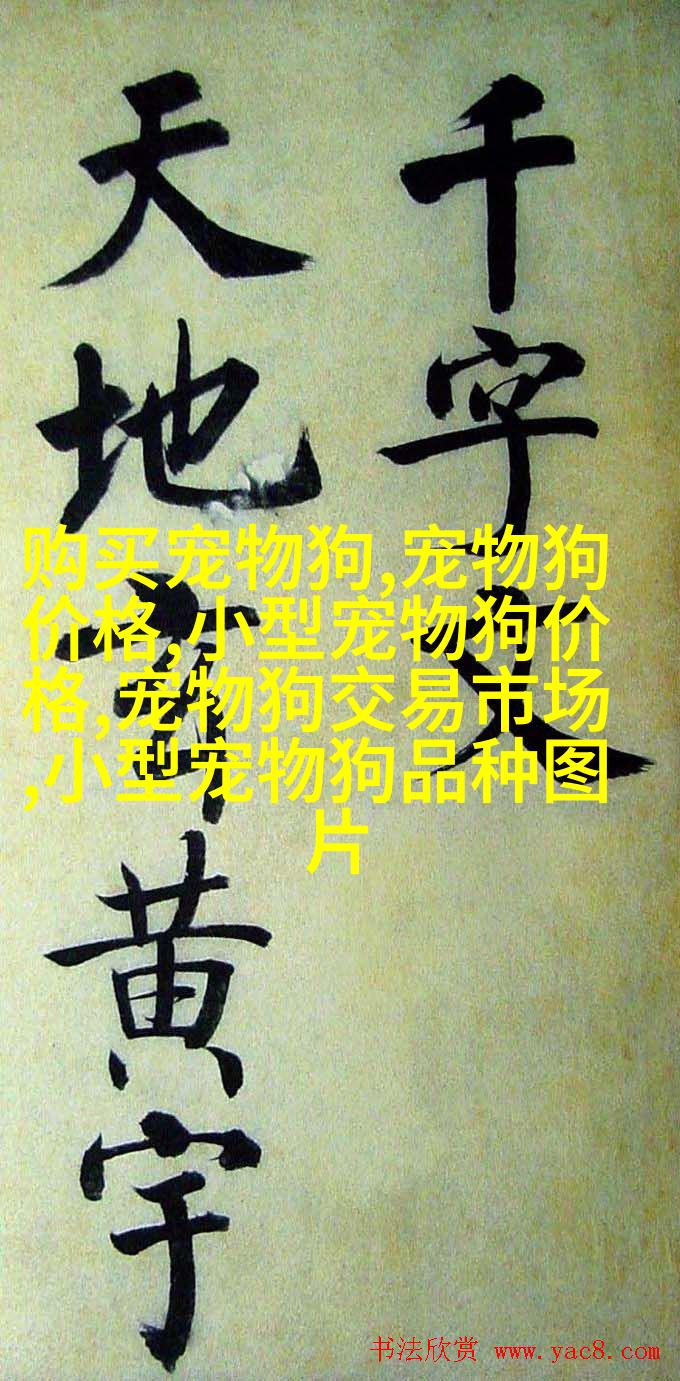 千字文
天地黄宇
购买宠物狗,宠物狗
价格,小型宠物狗价
格,宠物狗交易市场
,小型宠物狗品种图
片
书法欣赏 www.yac8.com